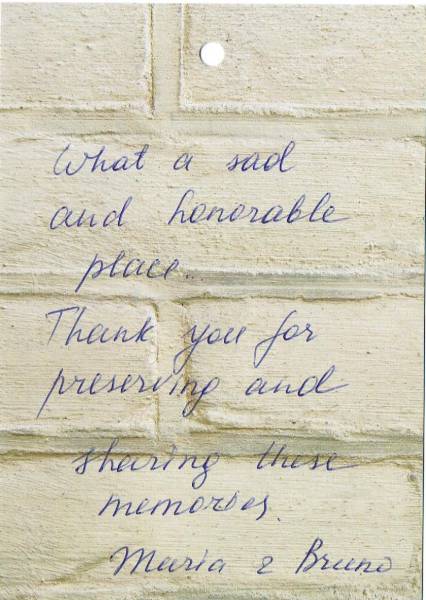 What a sad
and honorable
place..
Thank you for
preserving and
sharing these
memories.
Maria & Bruno